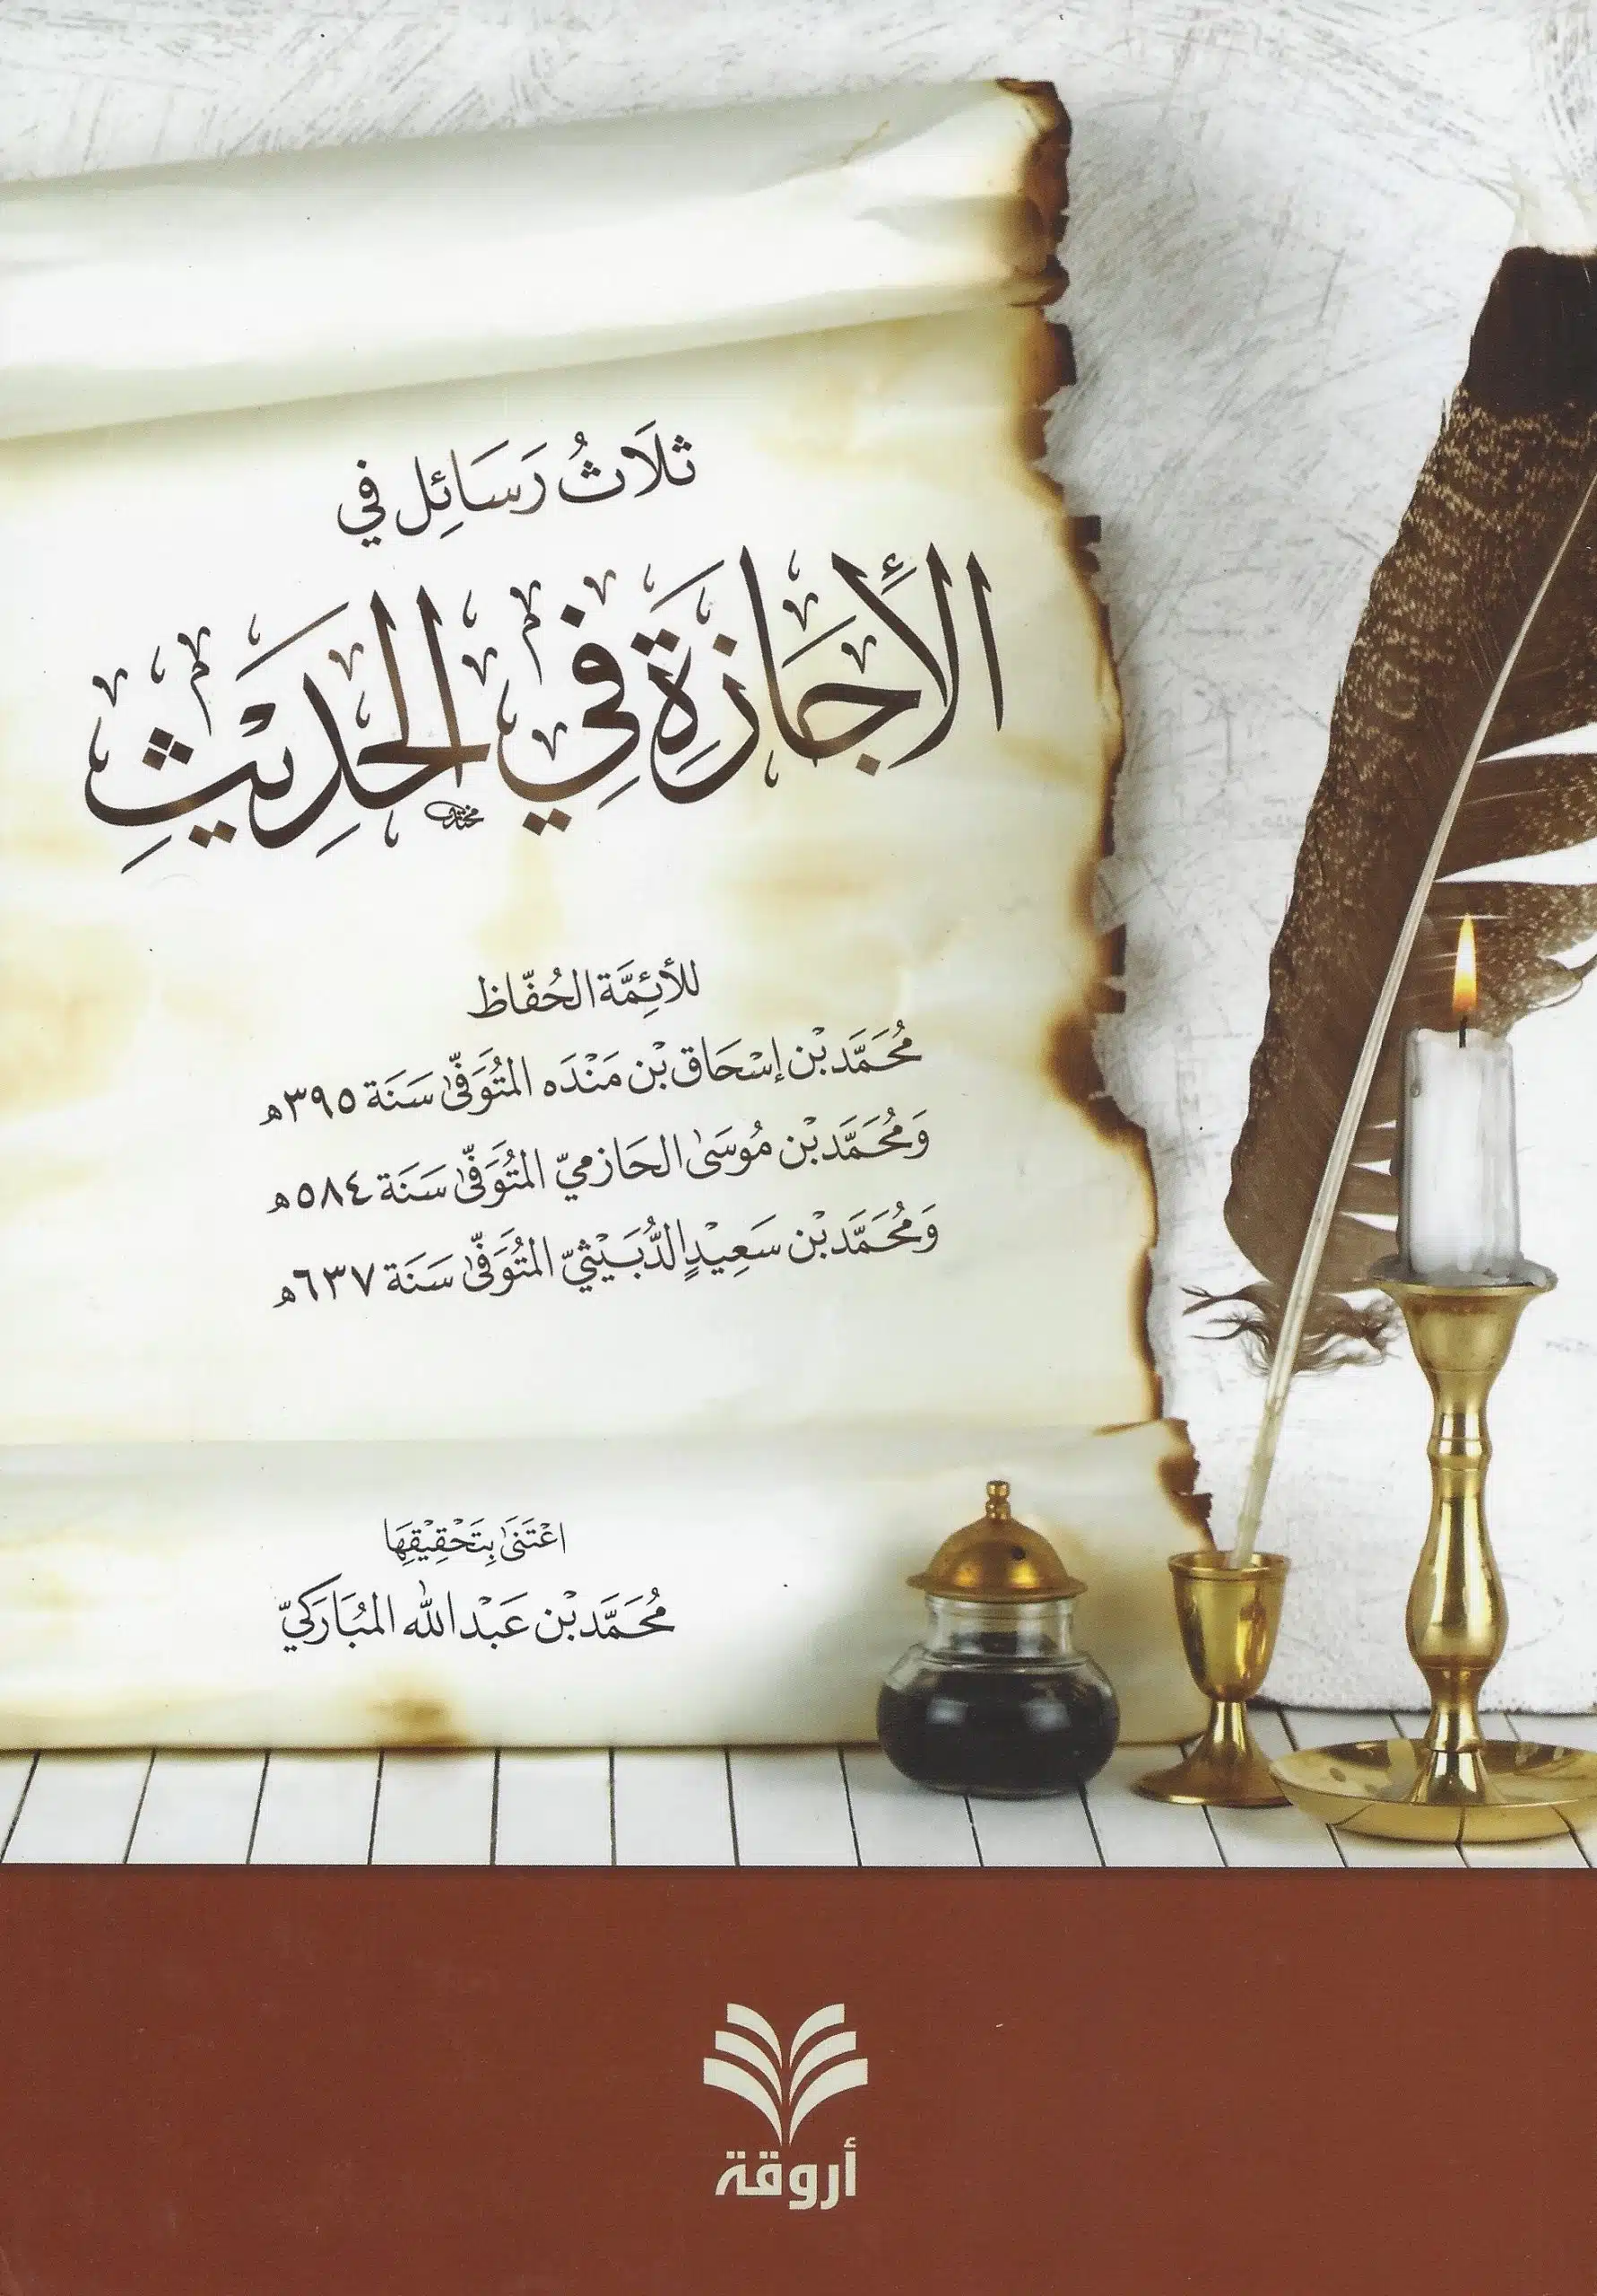 ثَلَاثُ رَسَائِل في
الإِجَازَةِ فِي الحَدِيثِ
للأئِمَّة الحُفّاظ
مُحَمَّد بْن إسْحَاق بْن مَنْدَه المتُوَفّى سَنَة ٣٩٥ه
وَمُحَمَّد بْن مُوسَى الحَازميّ المتُوَفّى سَنَة ٥٨٤ه
وَمُحَمَّد بْن سَعِيْدٍ الدُّبَيْثيّ المتُوَفّى سَنَة ٦٣٧ه
اعْتَنَى بِتَحْقِيْقِهَا
مُحَمَّد بْن عَبْد الله المُبَارَكيّ
أروقة